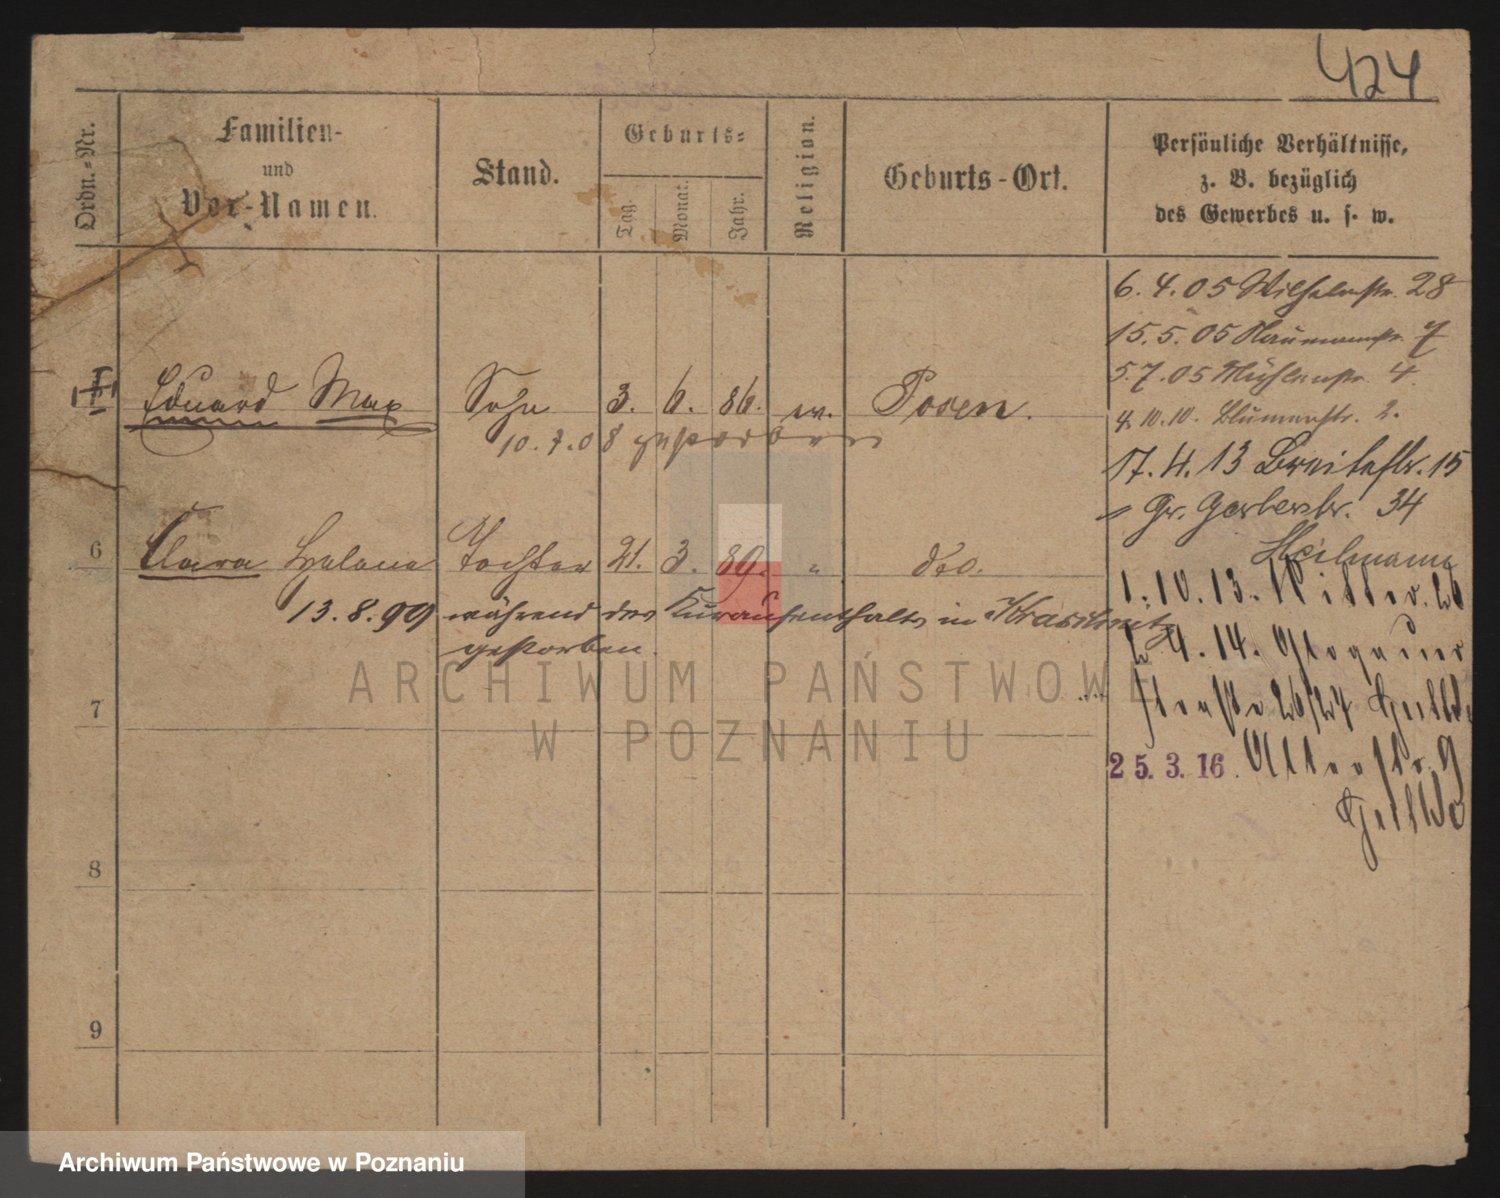 424
Ordn.-Nr.
Familien-
und
Vor-Namen.
Stand.
Geburts-
Tag.
Monat.
Jahr.
Religion.
Geburts-Ort.
Persönliche Verhältnisse,
z. B. bezüglich
des Gewerbes u. s. w.
6. 4. 05 Wilhelmstr. 28
15. 5. 05 Naumannstr. 7
5. 7. 05 Mühlenstr. 4.
4. 10. 10. Blumenstr. 2.
17. 4. 13 Breitestr. 15
Gr. Gerberstr. 34
Heilmann
Eduard Max Sohn 3. 6. 86. ev. Posen.
10. 7. 08 gestorben
6 Clara Helene Tochter 21. 3. 89. " dto.
13. 8. 99 während des Kuraufenthalts in
gestorben.
1. 10. 13. Ritterstr. 26
4. 14. Glogauer
Straße 26/27
25. 3. 16.
7
8
9
ARCHIWUM PAŃSTWOWE
W POZNANIU
Archiwum Państwowe w Poznaniu